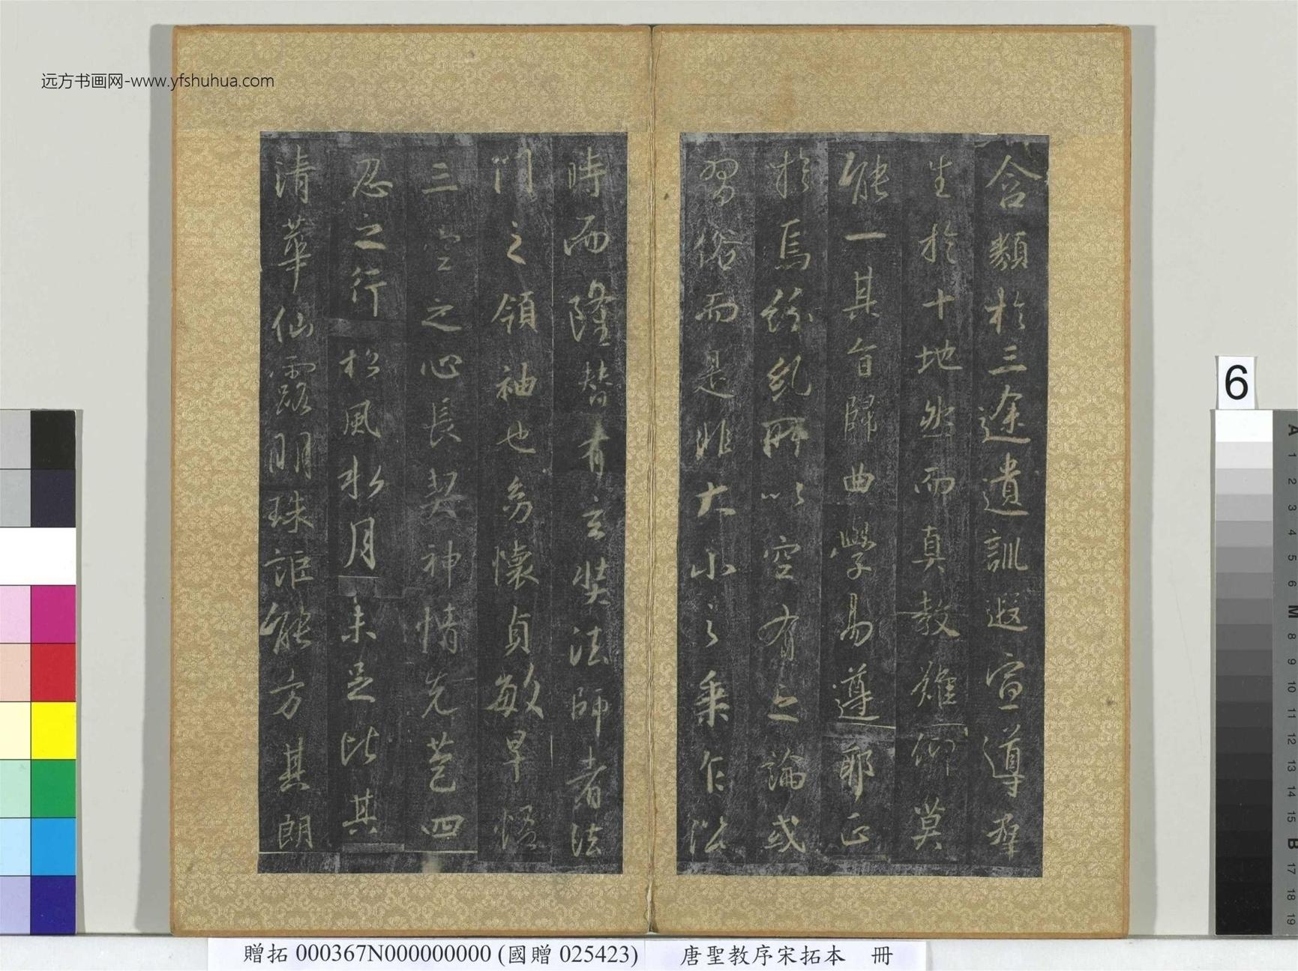 远方书画网-www.yfshuhua.com
含類於三途遺訓遐宣導群
生於十地然而真教難仰莫
能一其旨歸曲學易遵耶正
於焉紛糺所以空有之論或
習俗而是非大小之乘乍沿
時而隆替有玄奘法師者法
門之領袖也幼懷貞敏早悟
三空之心長契神情先苞四
忍之行松風水月未足比其
清華仙露明珠詎能方其朗
6
A
1
2
3
4
5
M
8
9
10
11
12
13
14
15
B
17
18
19
贈拓 000367N000000000 (國贈 025423)
唐聖教序宋拓本 冊